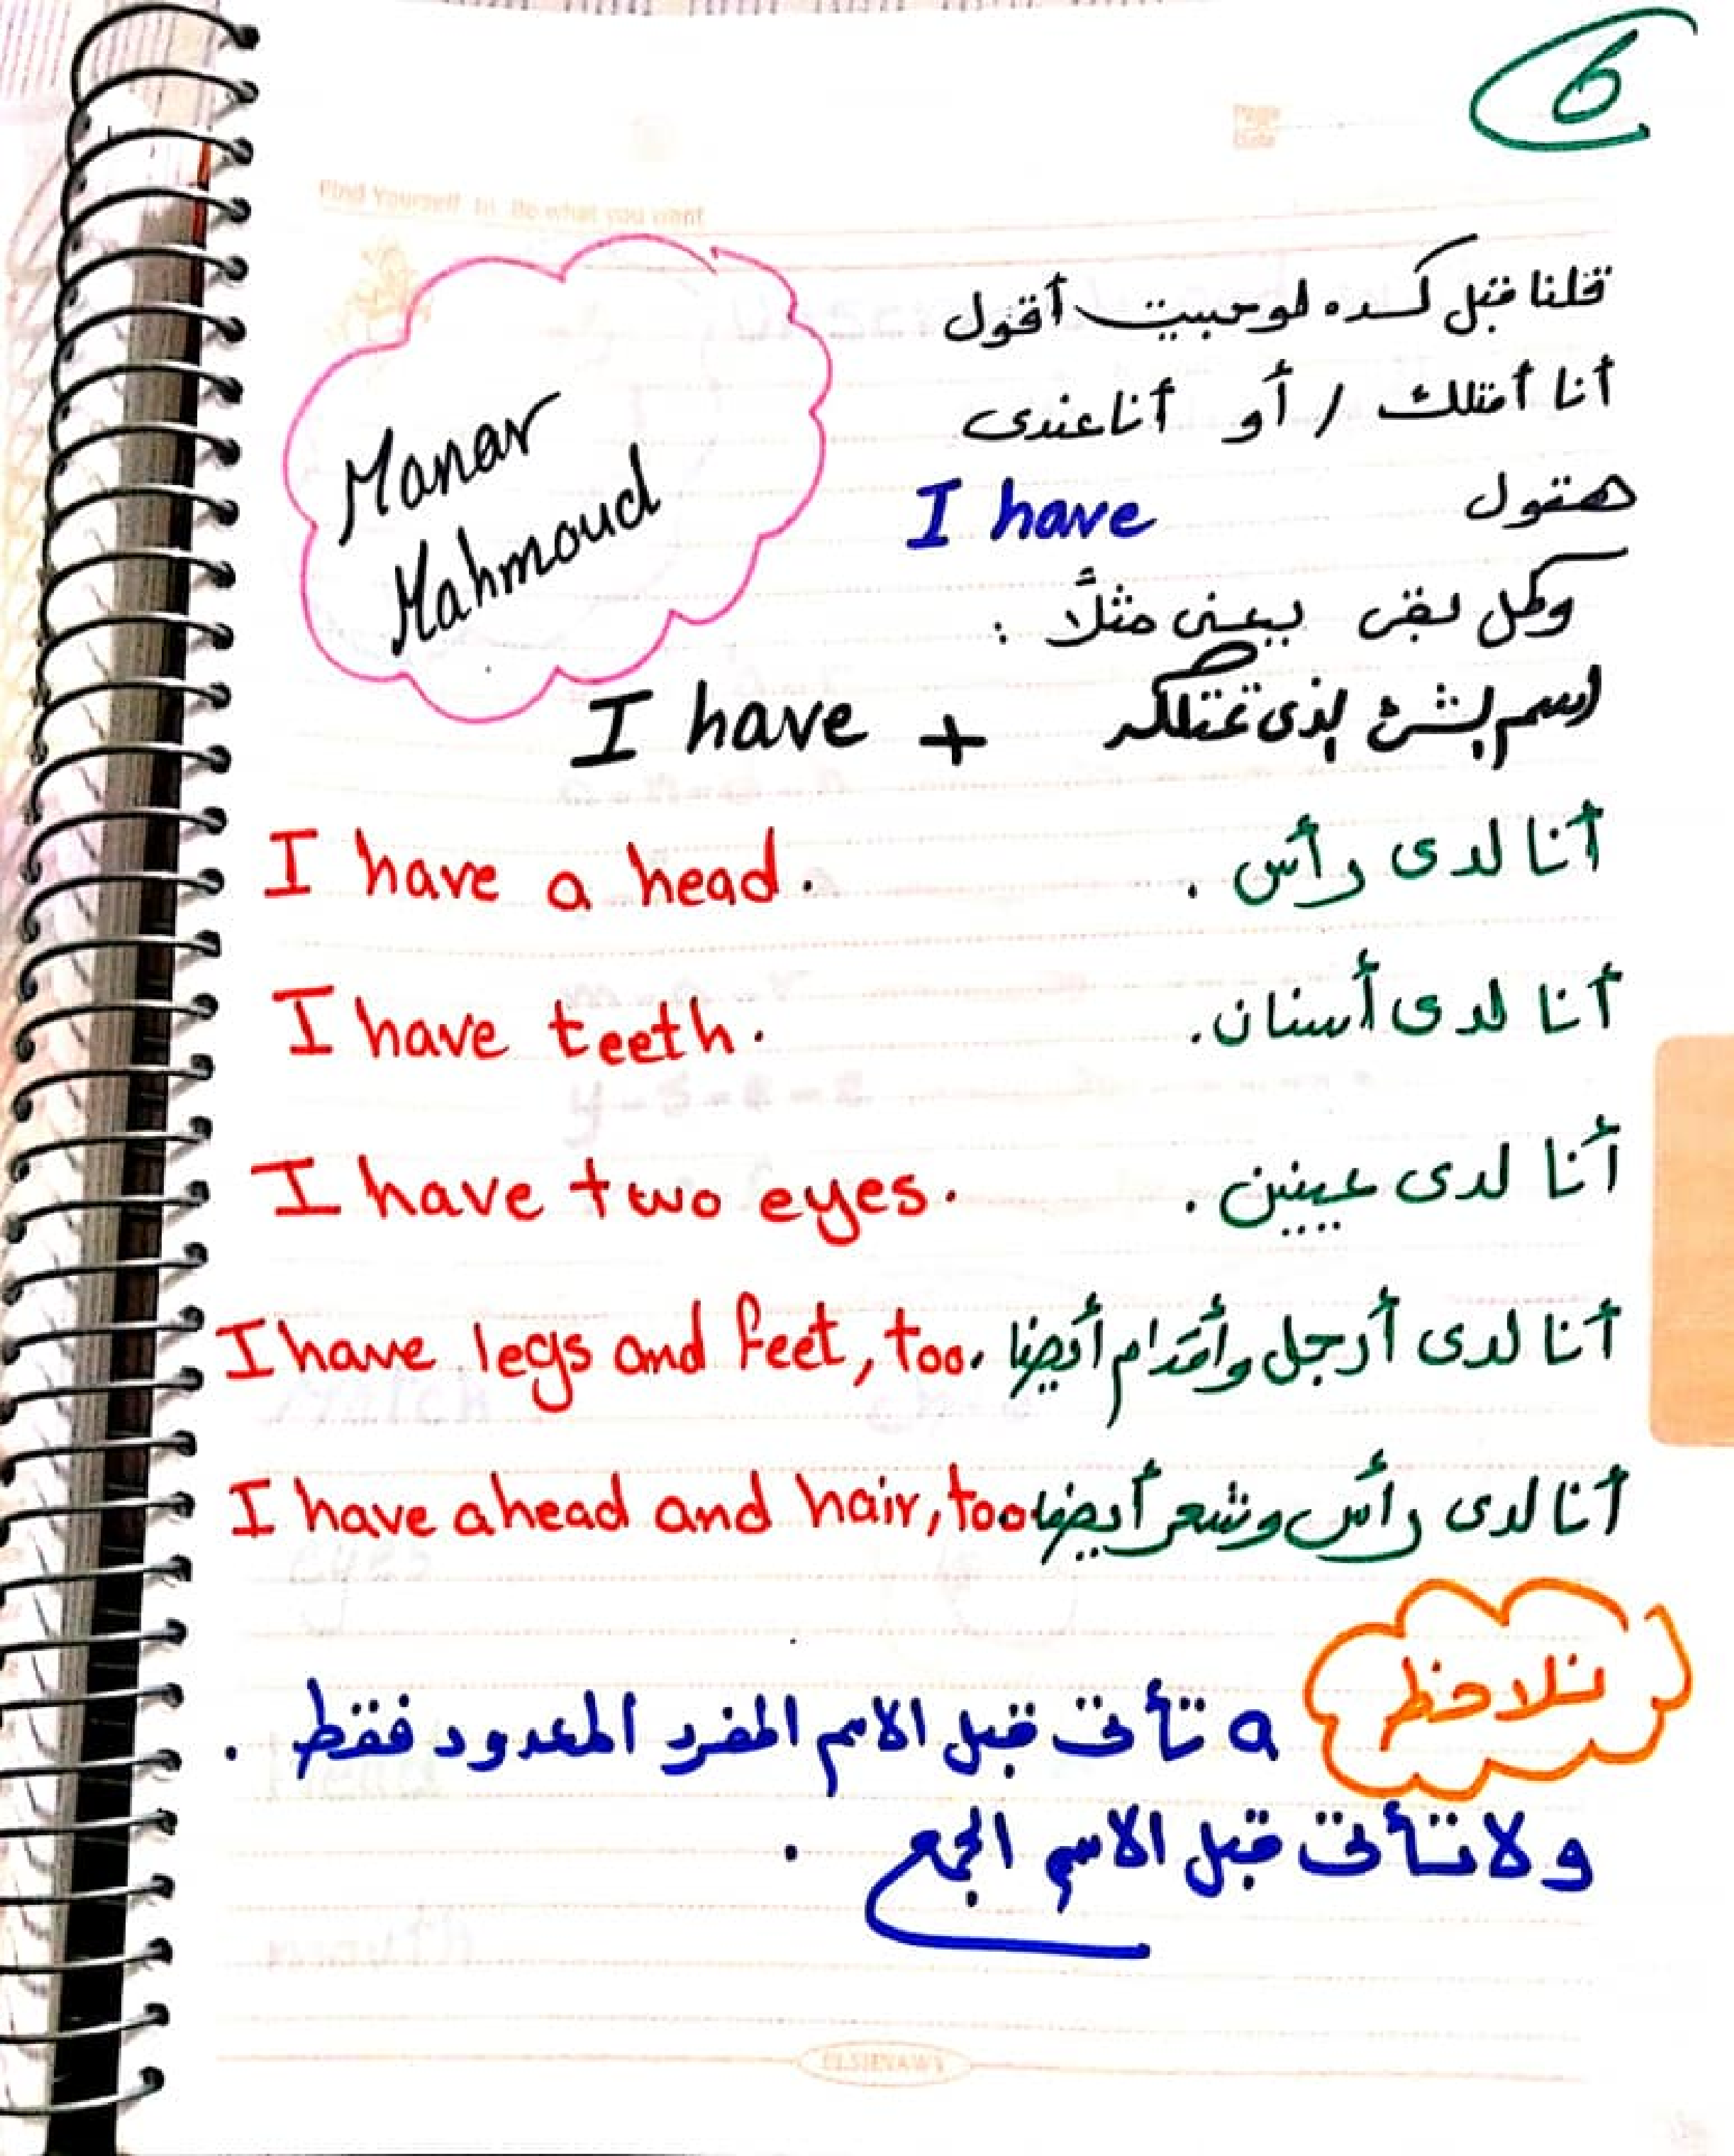 6
Page
Date
Find Yourself to Be what you want
Manar
Mahmoud
قلنا قبل كده لو حبيت أقول
أنا أمتلك / أو أنا عندى
هتقول I have
وكمل بقى يعنى مثلاً :
I have + اسم الشئ الذى تمتلكه
I have a head. أنا لدى رأس .
I have teeth. أنا لدى أسنان.
I have two eyes. أنا لدى عينين .
I have legs and feet, too. أنا لدى أرجل وأقدام أيضا
I have a head and hair, too. أنا لدى رأس وشعر أيضا
نلاحظ
a تأتى قبل الاسم المفرد المعدود فقط .
ولا تأتى قبل الاسم الجمع .